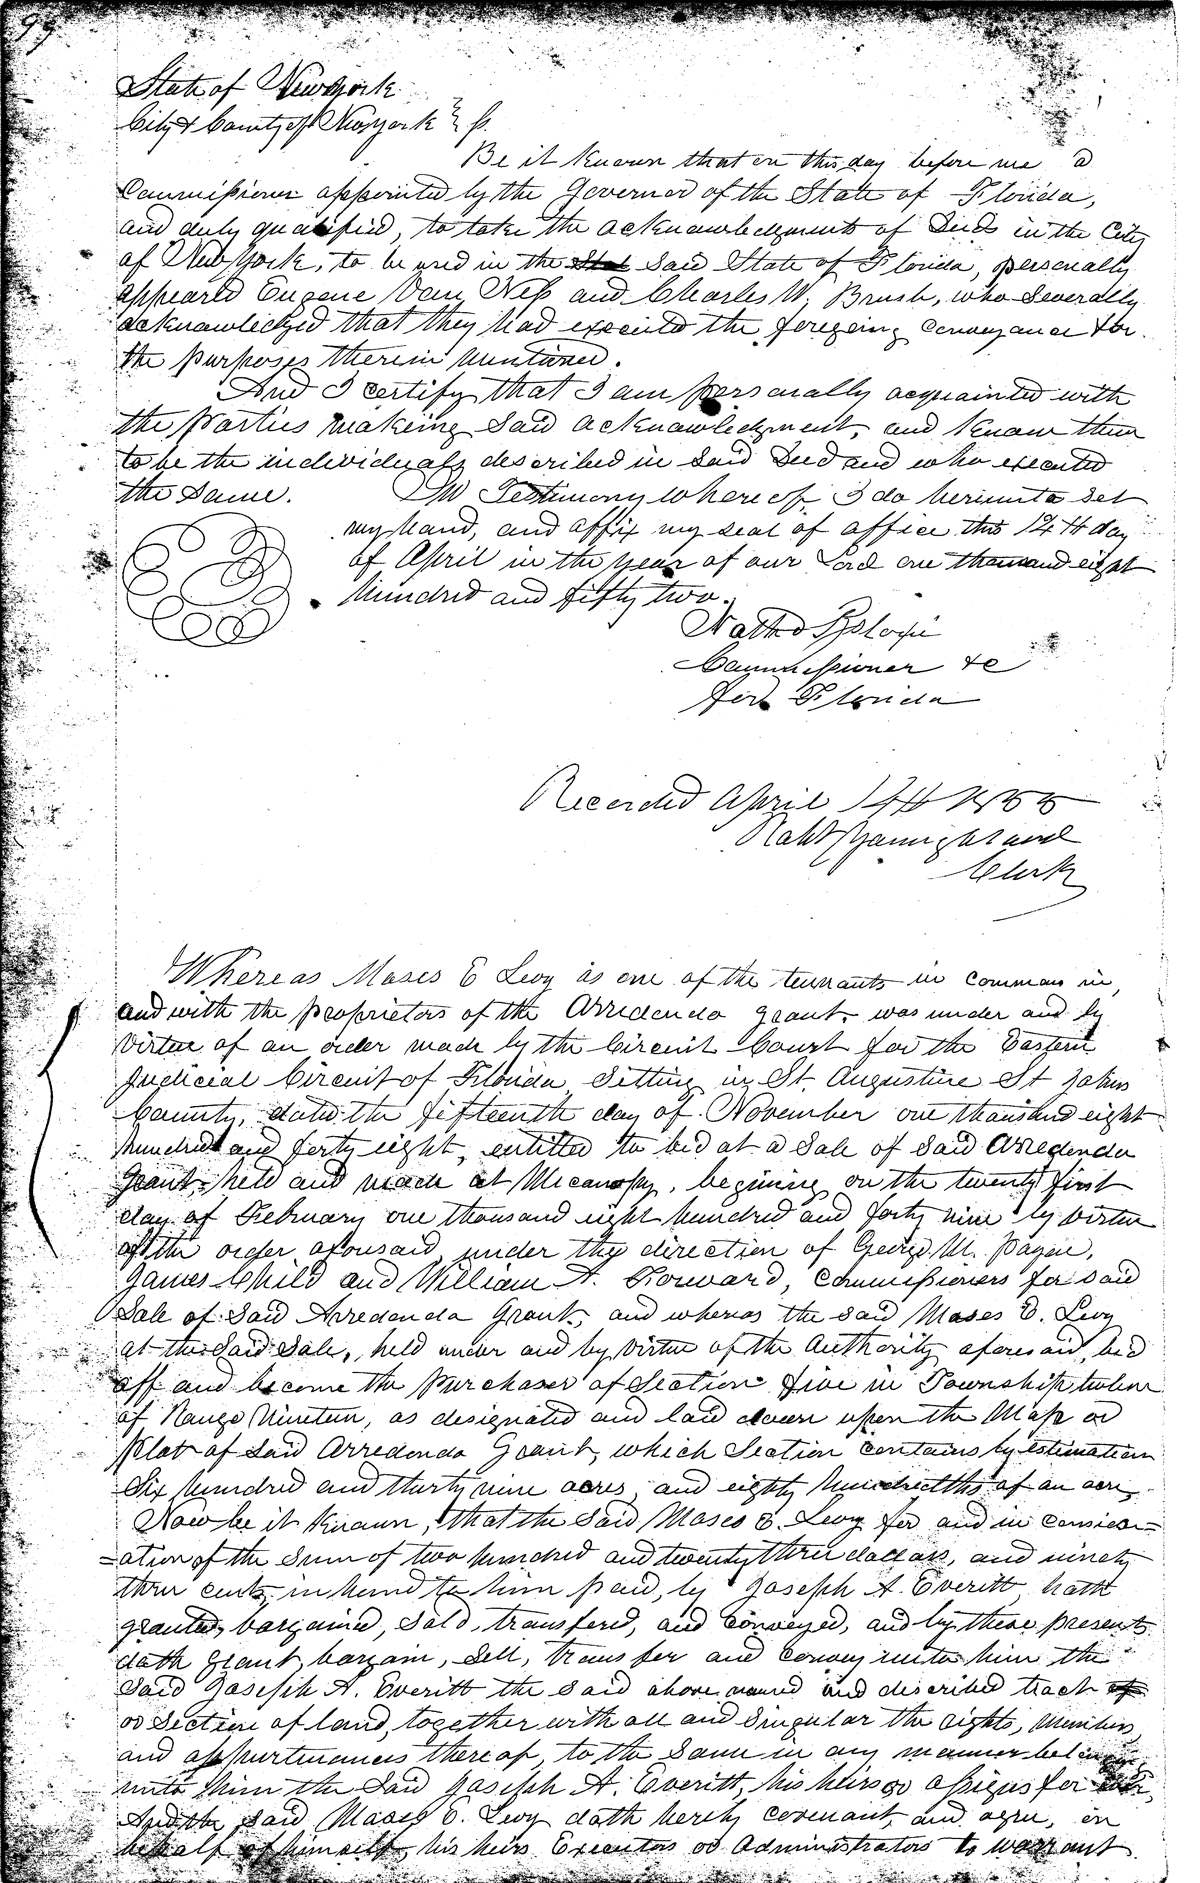 99
State of New york
City & County of New york } ss.
Be it known that on this day before me a
Commissioner appointed by the Governor of the State of Florida,
and duly qualified, to take the acknowledgments of Deeds in the City
of New York, to be used in the Stat Said State of Florida, personally
appeared Eugene Van Ness and Charles W. Brush, who Severally
acknowledged that they had executed the foregoing conveyance for
the purposes therein mentioned.
And I certify that I am personally acquainted with
the Parties makeing Said acknowledgment, and know them
to be the individuals described in Said Deed and who executed
the Same. In Testimony whereof, I do herinunto Set
my hand, and affix my seal of office this 12th day
of April in the year of our Lord one thousand eight
hundred and fifty two.
Commissioner &c
for Florida
Recorded April 14th 1855
Clerk
Whereas Moses E Levy as one of the tennants in common in,
and with the proprietors of the Arredondo grant, was under and by
Virtue of an order made by the Circuit Court for the Eastern
Judicial Circuit of Florida, Sitting in St. Augustine St Johns
County, dated the fifteenth day of November one thousand eight
hundred and forty eight, entitled to bid at a Sale of Said Arredondo
Grant, held and made at Micanopy, begining on the twenty first
day of February one thousand eight hundred and forty nine by virtue
of the order aforesaid, under the direction of George M. Payne,
James Child and William A. Forward, Commissioners for Said
Sale of Said Arredondo Grant, and whereas the said Moses E. Levy
at the Said Sale, held under and by virtue of the Authority aforesaid, bid
off and become the Purchaser of Section five in Township twelve
of Range Nineteen, as designated and laid down upon the Map or
Plat of Said Arredondo Grant, which Section contains by estimation
Six hundred and thirty nine acres, and eighty hundredths of an acre,
Now be it Known, that the Said Moses E. Levy for and in consider=
=ation of the Sum of two hundred and twenty three dollars, and ninety
three cents, in hand to him paid, by Joseph A. Everitt, hath
granted, bargained, Sold, transfered, and Conveyed, and by these presents
doth grant, bargain, Sell, transfer and convey unto him the
Said Joseph A. Everitt the Said above named and described tract of
or Section of land, together with all and Singular the rights, Members
and appurtenances thereof, to the Same in any manner
unto him the Said Joseph A. Everitt, his heirs or assigns for ever,
And the Said Moses E. Levy doth hereby covenant, and agree, on
behalf of himself, his heirs Executors or Administrators to warrant